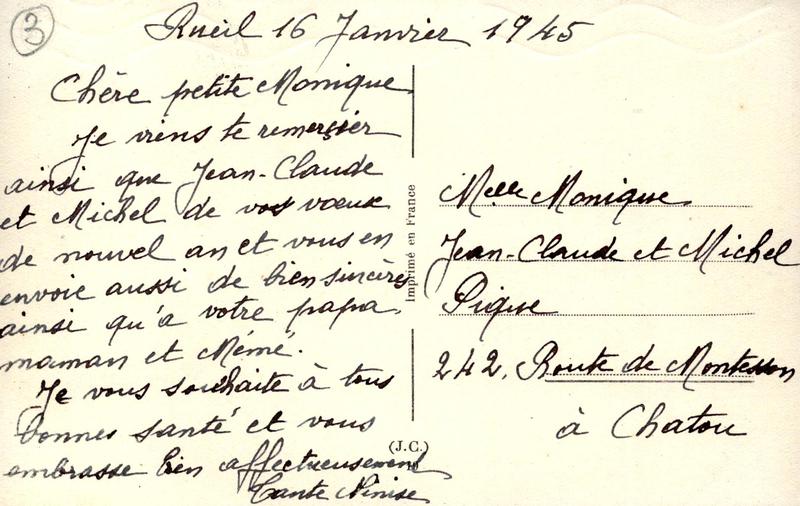 3
Rueil 16 Janvier 1945
Chère petite Monique
Je viens te remercier
ainsi que Jean-Claude
et Michel de vos vœux
de nouvel an et vous en
envoie aussi de bien sincères
ainsi qu'à votre papa
maman et Mémé.
Je vous souhaite à tous
bonnes santé et vous
embrasse bien affectueusement
Tante Ninise
Imprimé en France
(J.C.)
Melle Monique
Jean-Claude et Michel
Pique
242, Route de Montesson
à Chatou